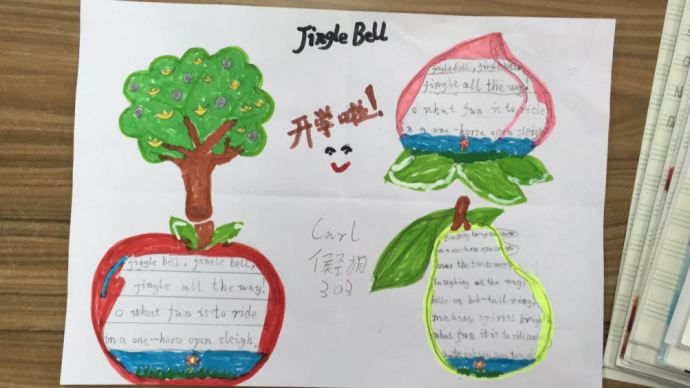 Jingle Bell
开学啦!
jingle bell, jingle bell,
jingle all the way.
o what fun is to ride
in a one-horse open sleigh.
jingle bell, jingle bell,
jingle all the way.
o what fun is to ride
in a one-horse open sleigh.
Carl
303
Dashing through the snow
in a one-horse open sleigh
over the fields we go
laughing all the way.
bells on bob-tail ring.
making spirits bright
what fun it is to ride and